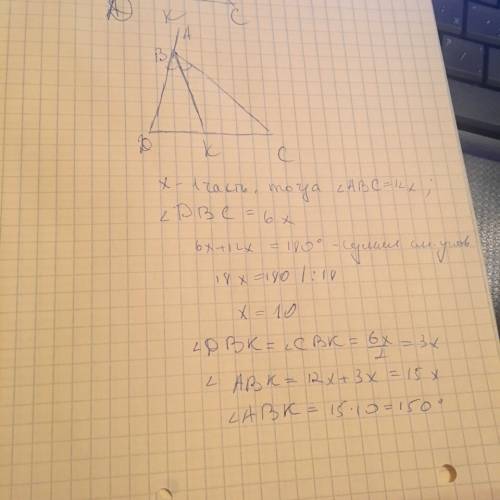 K C
A
B
D K C
x - 1 часть, тогда ∠ABC = 12x;
∠DBC = 6x
6x+12x = 180° - сумма см. углов
18x = 180 /:18
x = 10
∠DBK = ∠CBK = 6x/2 = 3x
∠ABK = 12x + 3x = 15x
∠ABK = 15·10 = 150°